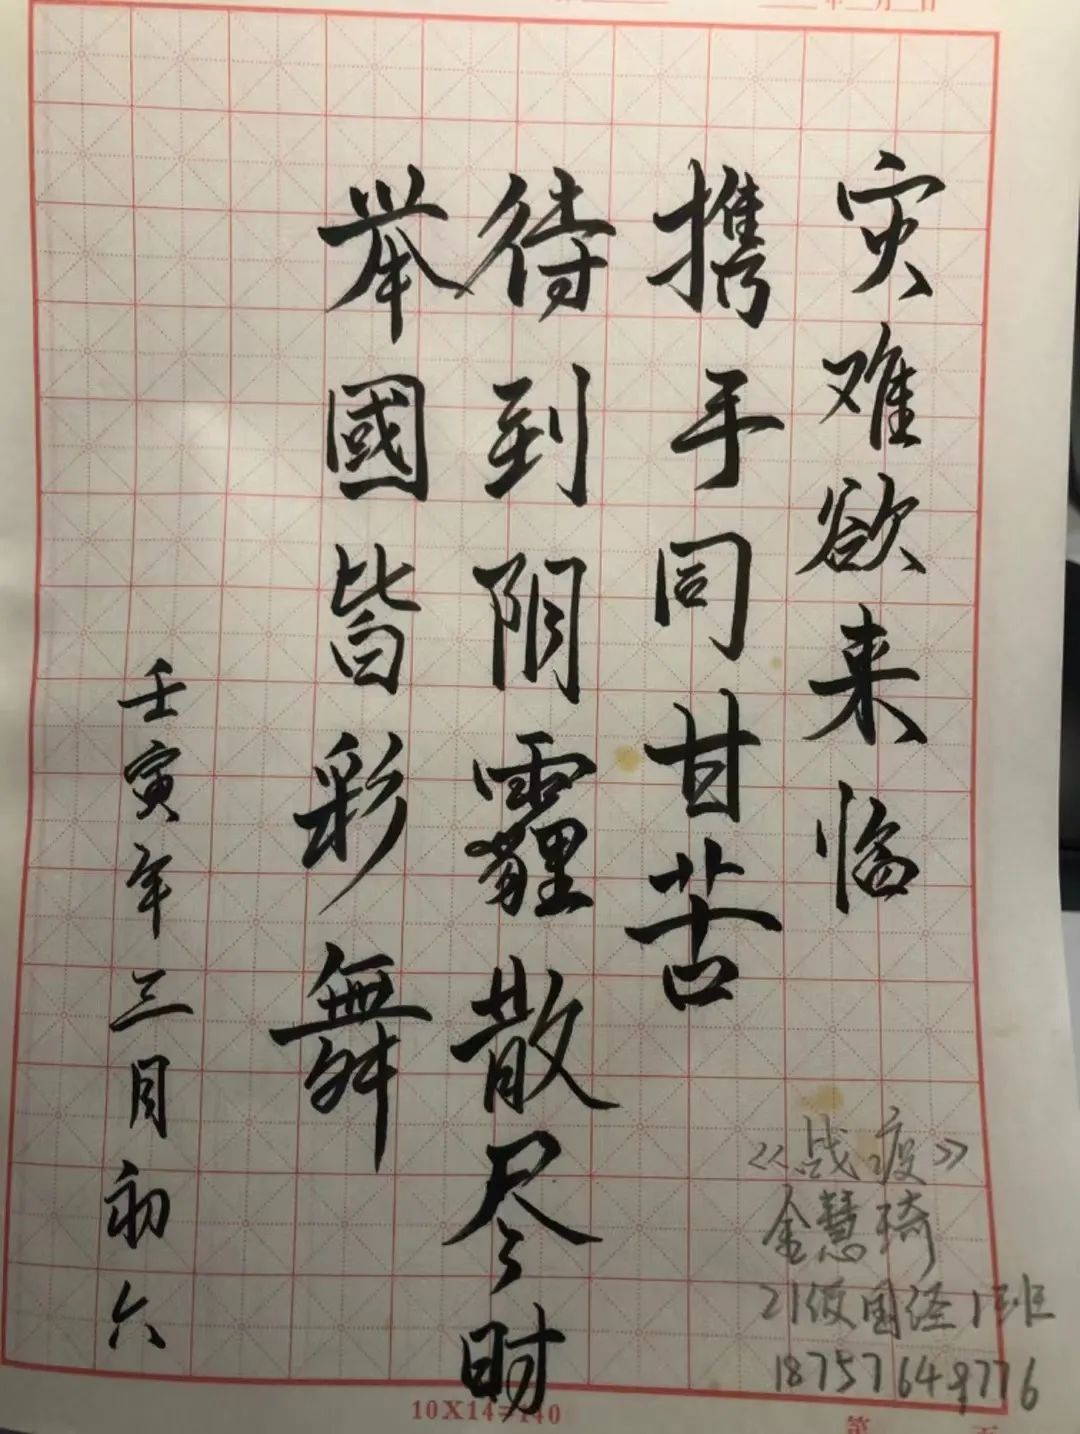 灾难欲来临
携手同甘苦
待到阴霾散尽时
举國皆彩舞
壬寅年三月初六
《战疫》
金慧琦
21级国经1班
18757649776
10X14=140